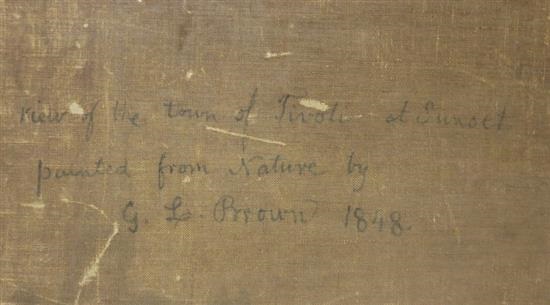 View of the town of Tivoli at Sunset
painted from Nature by
G. L. Brown 1848.